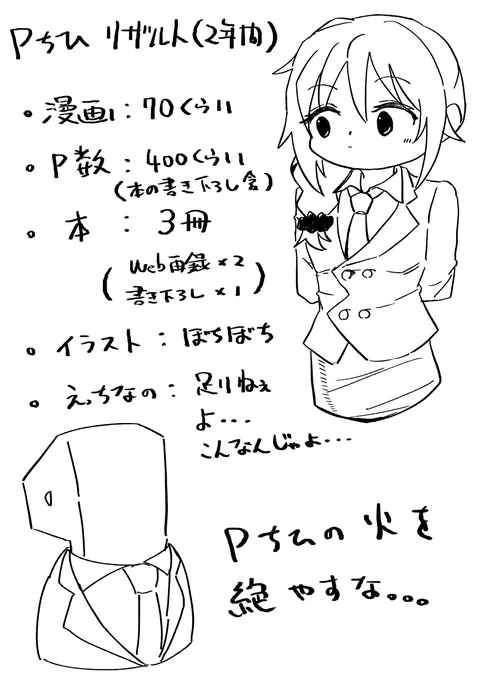 Pちひ リザルト(2年間)
• 漫画:70くらい
• P数:400くらい
(本の書き下ろし含)
• 本:3冊
(web再録×2
書き下ろし×1)
• イラスト:ぼちぼち
• えっちなの:足りねぇ
よ…
こんなんじゃよ…
Pちひの火を
絶やすな…